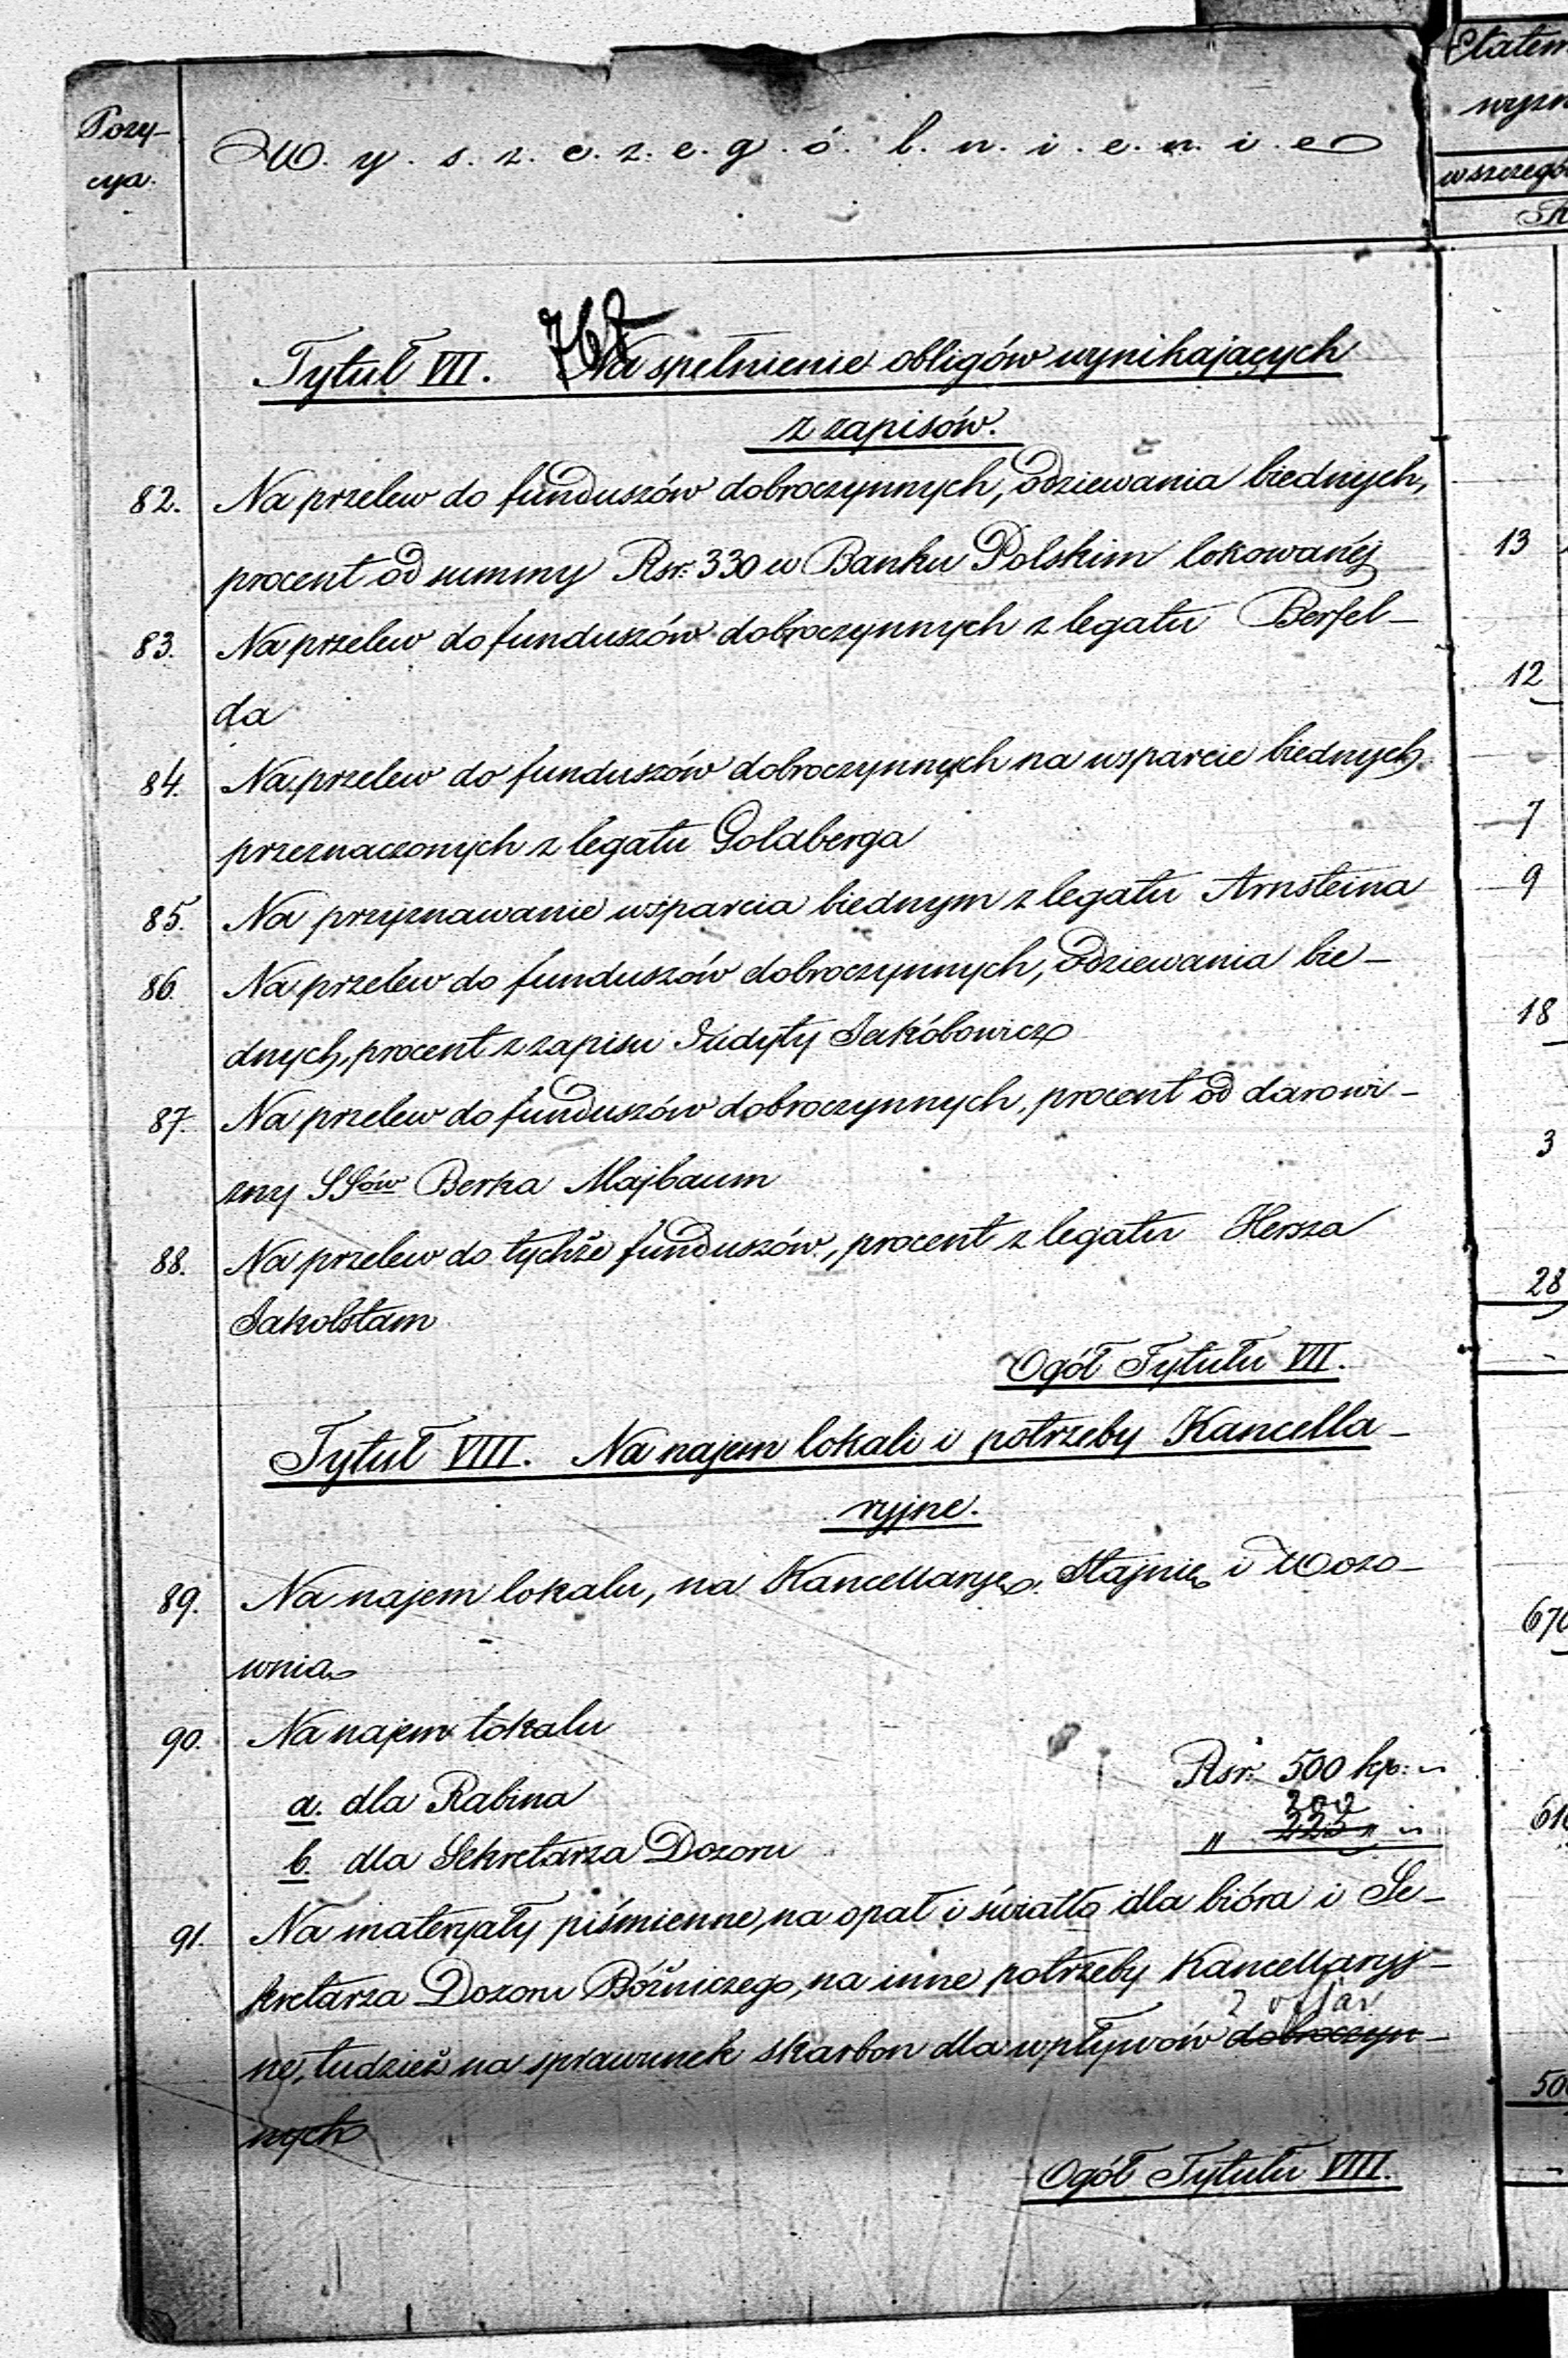 Pozy-
cya.
W. y. s. z. c. z. e. g. ó. l. n. i. e. n. i. e
Etatem
wyzn
wszczegó
767
Tytuł VII. Na spełnienie obligów wynikających
z zapisów.
82. Na przelew do funduszów dobroczynnych, odziewania biednych,
procent od summy Rsr. 330 w Banku Polskim lokowanéj 13
83. Na przelew do funduszów dobroczynnych z legatu Berfel-
da 12
84. Na przelew do funduszów dobroczynnych na wsparcie biednych
przeznaczonych z legatu Goldberga 7
85. Na przyznawanie wsparcia biednym z legatu Arnsteina 9
86. Na przelew do funduszów dobroczynnych, odziewania bie-
dnych, procent z zapisu Judyty Jakóbowicz 18
87. Na przelew do funduszów dobroczynnych, procent od darowi-
zny SSów Berka Majbaum 3
88. Na przelew do tychże funduszów, procent z legatu Hersza
Jakobstam 28
Ogół Tytułu VII.
Tytuł VIII. Na najem lokali i potrzeby Kancella-
ryjne.
89. Na najem lokalu, na Kancellaryę, Stajnię i Wozo-
wnią 670
90. Na najem lokalu
a. dla Rabina Rsr. 500 kp. "
200
b. dla Sekretarza Dozoru " 225 " "
61
91. Na materyały piśmienne, na opał i światło dla bióra i Se-
kretarza Dozoru Bóżniczego, na inne potrzeby Kancellaryj-
z ofiar
ne, tudzież na sprawunek skarbon dla wpływów dobroczyn-
nych 50
Ogół Tytułu VIII.